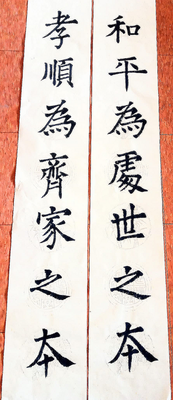 和平為處世之本
孝順為齊家之本